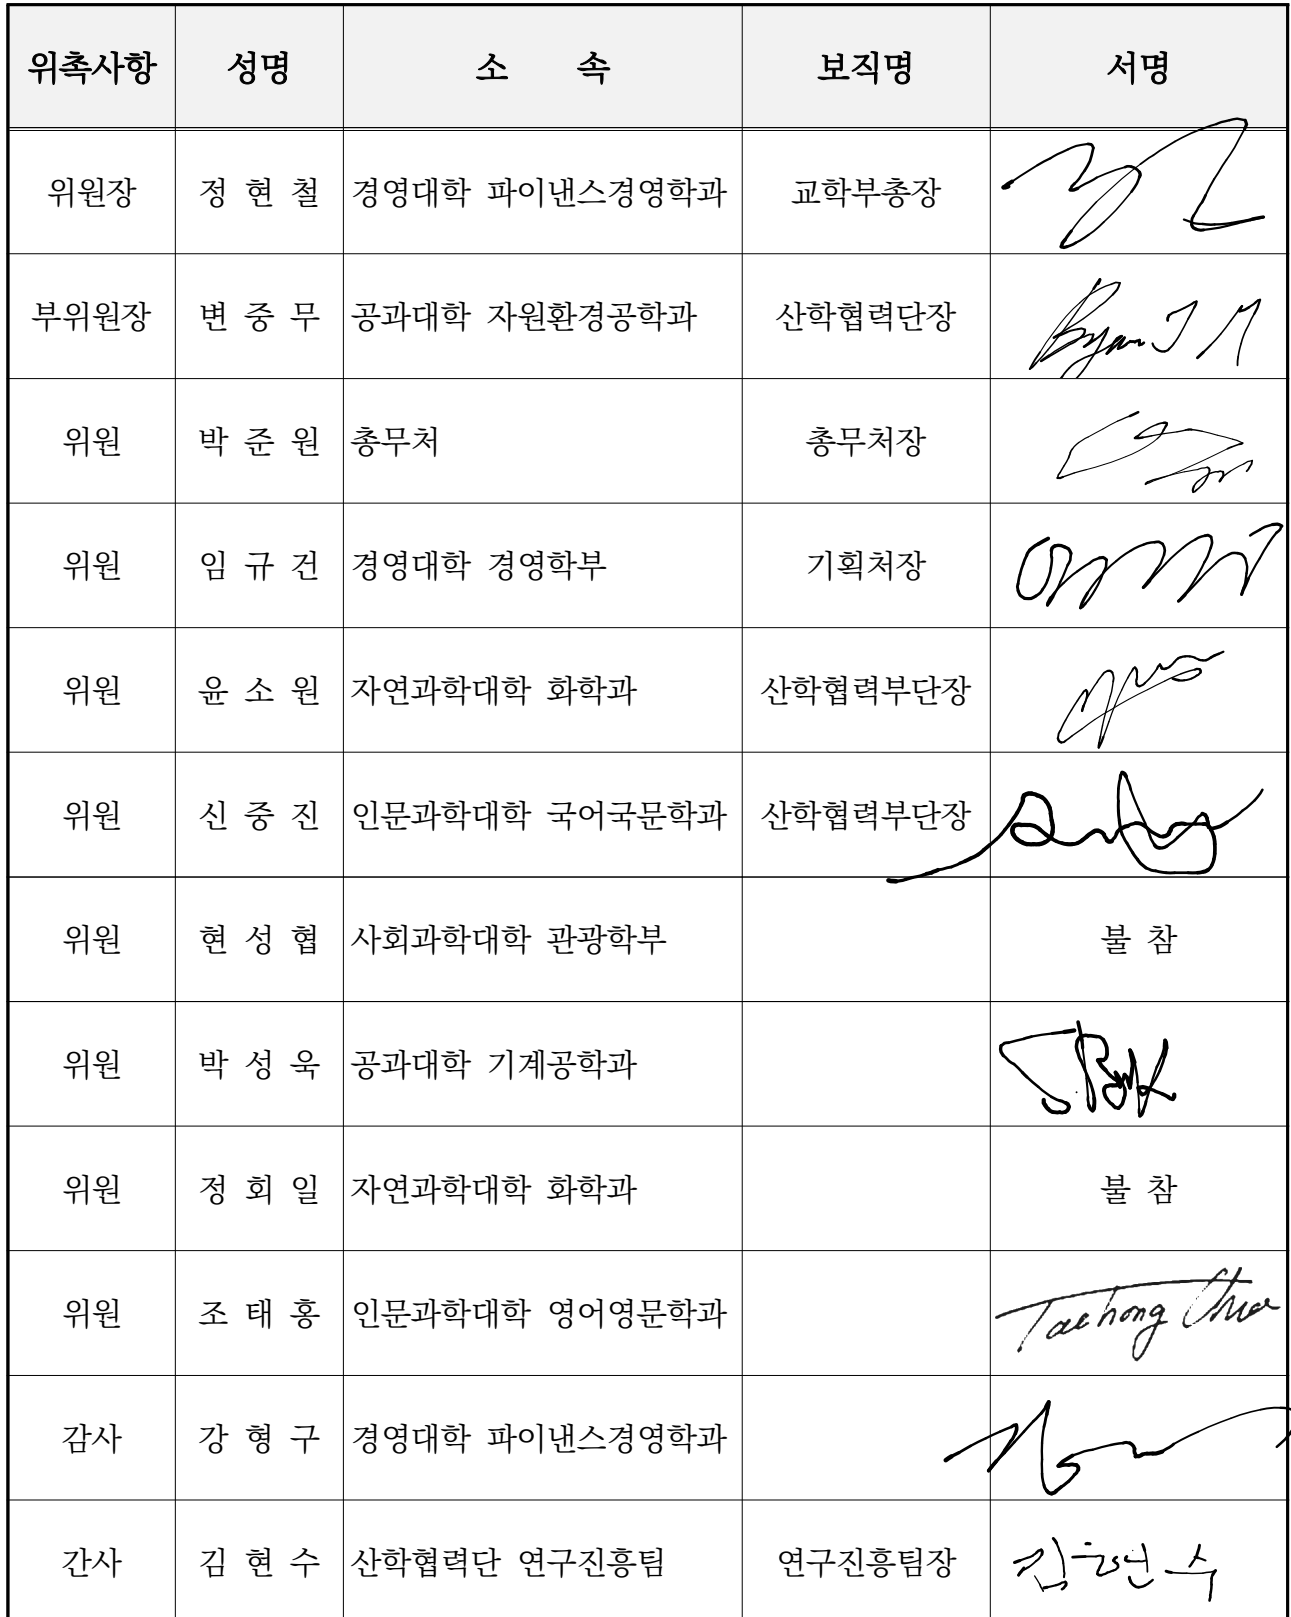 위촉사항 성명 소 속 보직명 서명
위원장 정 현 철 경영대학 파이낸스경영학과 교학부총장
부위원장 변 중 무 공과대학 자원환경공학과 산학협력단장 Byun J M
위원 박 준 원 총무처 총무처장
위원 임 규 건 경영대학 경영학부 기획처장
위원 윤 소 원 자연과학대학 화학과 산학협력부단장
위원 신 중 진 인문과학대학 국어국문학과 산학협력부단장
위원 현 성 협 사회과학대학 관광학부 불 참
위원 박 성 욱 공과대학 기계공학과
위원 정 회 일 자연과학대학 화학과 불 참
위원 조 태 홍 인문과학대학 영어영문학과 Taehong Cho
감사 강 형 구 경영대학 파이낸스경영학과
간사 김 현 수 산학협력단 연구진흥팀 연구진흥팀장 김현수